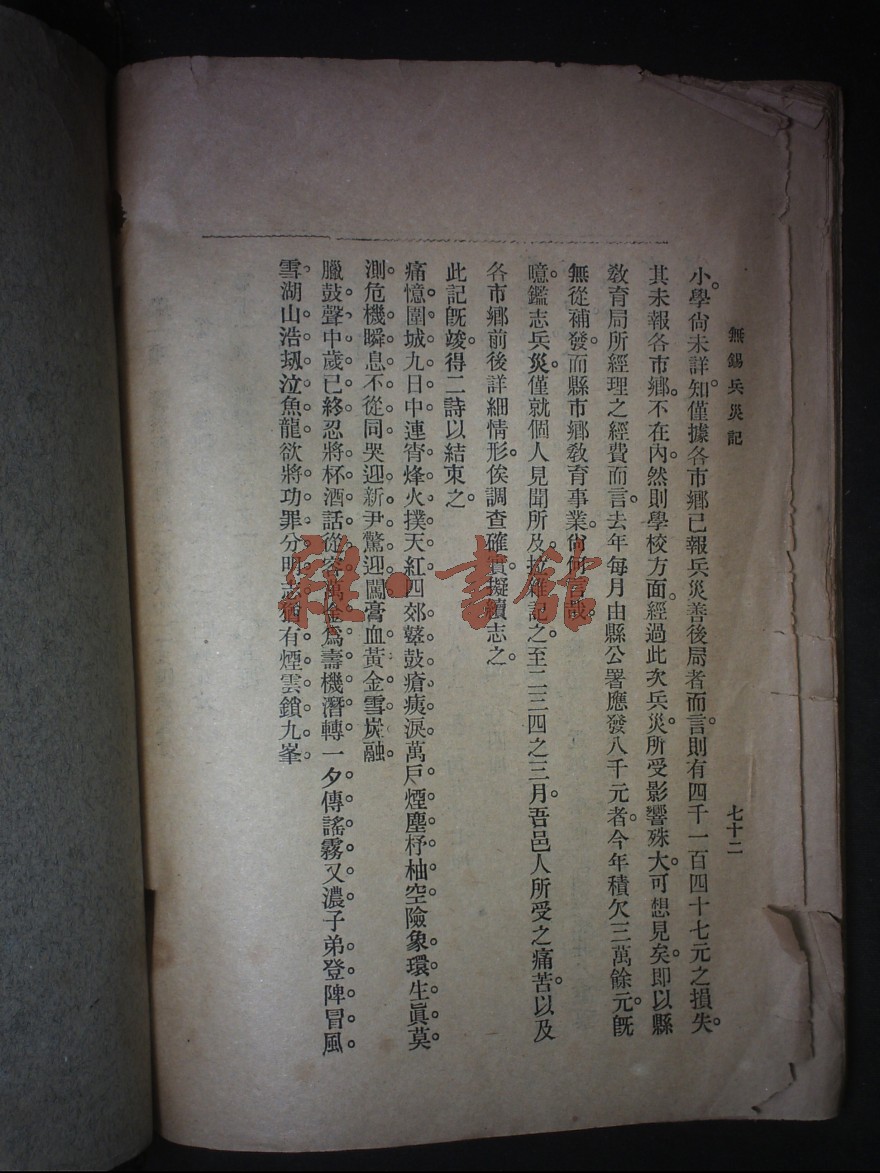 無錫兵災記
七十二
小學。尙未詳知。僅據各市鄉已報兵災善後局者而言。則有四千一百四十七元之損失。
其未報各市鄉。不在內。然則學校方面。經過此次兵災。所受影響殊大。可想見矣。即以縣
敎育局所經理之經費而言。去年每月由縣公署應發八千元者。今年積欠三萬餘元。旣
無從補發。而縣市鄉敎育事業。尙何言哉。
噫。鑑志兵災。僅就個人見聞所及。拉雜記之。至二三四之三月。吾邑人所受之痛苦。以及
各市鄉前後詳細情形。俟調查確實。擬續志之。
此記旣竣。得二詩以結束之。
痛憶圍城九日中。連宵烽火撲天紅。四郊鼙鼓瘡痍淚。萬戶煙塵杼柚空。險象環生眞莫
測。危機瞬息不從同。哭迎新尹驚迎闖。膏血黃金雪炭融。
臘鼓聲中歲已終。忍將杯酒話從容。萬金爲壽機潛轉。一夕傳謠霧又濃。子弟登陴冒風
雪。湖山浩刼泣魚龍。欲將功罪分明志。猶有煙雲鎖九峯。
雜·書館